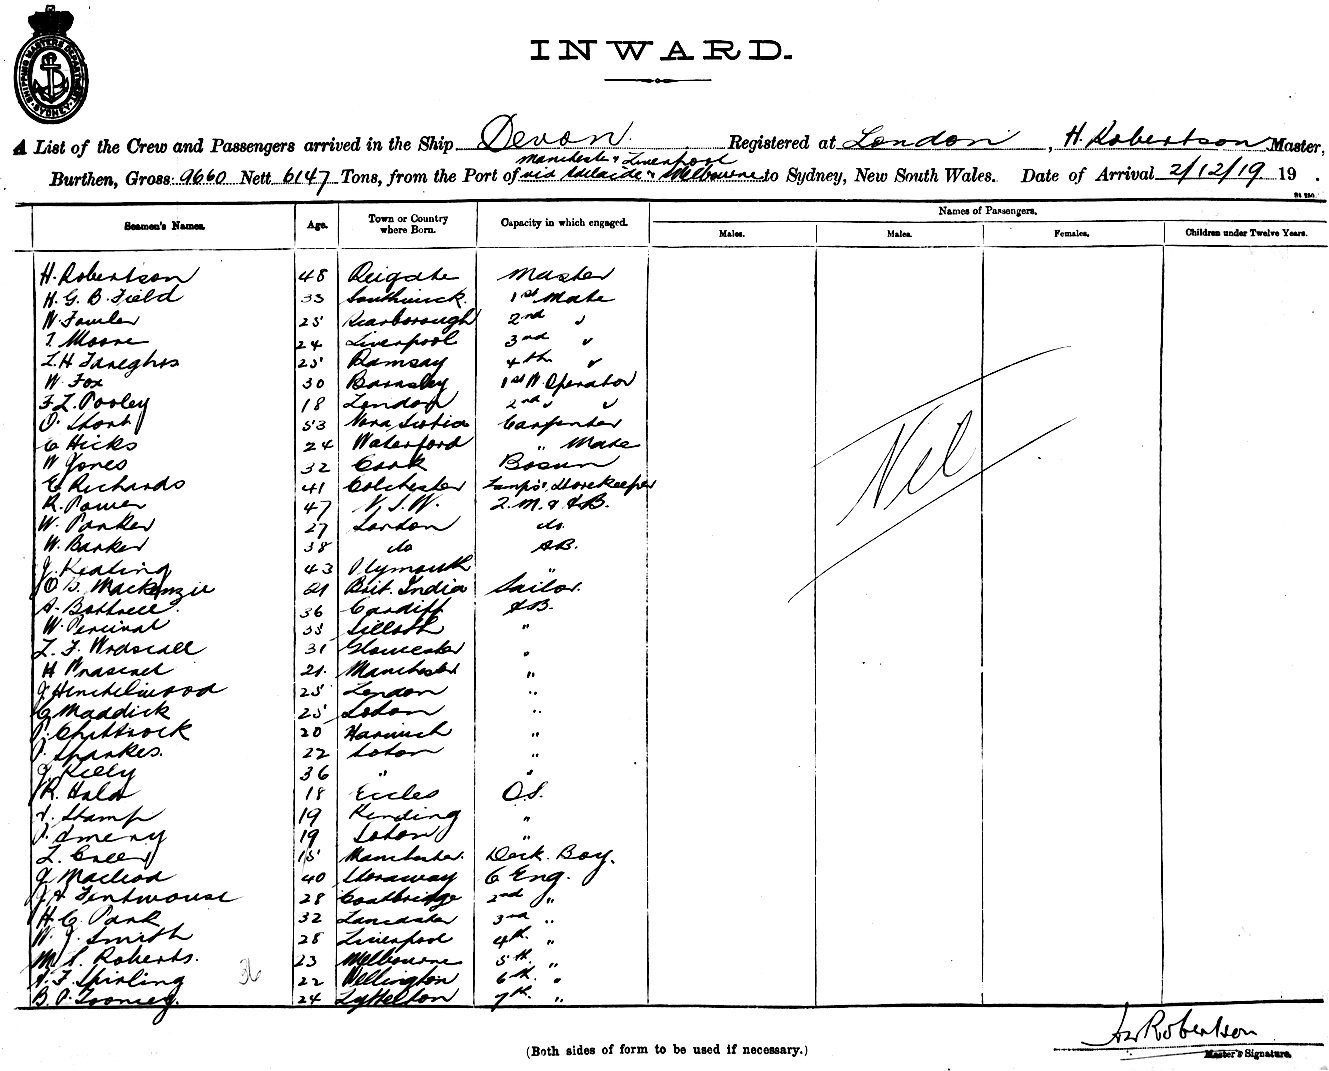 SHIPPING MASTERS DEPARTMENT SYDNEY
INWARD.
A List of the Crew and Passengers arrived in the Ship Devon Registered at London, H. Robertson Master,
Manchester & Liverpool
Burthen, Gross 9660 Nett 6147 Tons, from the Port of via Adelaide & Melbourne to Sydney, New South Wales. Date of Arrival 2/12/19 19 .
Names of Passengers.
Seamen's Names. Age. Town or Country where Born. Capacity in which engaged. Males. Males. Females. Children under Twelve Years.
H. Robertson 48 Reigate Master
H. G. B. Field 33 Southwick 1st Mate
W. Fowler 25 Scarborough 2nd "
T. Moore 24 Liverpool 3rd "
25 Ramsay 4th "
W. Fox 30 Barnsley 1st W. Operator
F. L. Pooley 18 London 2nd " "
D. Short 53 Nova Scotia Carpenter
C Hicks 24 Waterford " Mate
W Jones 32 Cork Bosun
E Richards 41 Colchester Lamps & Storekeeper
R. Power 47 N.S.W. Q.M. & AB.
W. Parker 27 London do.
W. Barker 38 do AB.
J. Keating 43 Plymouth "
Mackenzie 21 Brit. India Sailor.
A. Bottrell 36 Cardiff AB.
W. Percival 38 Silloth "
L. F. 31 Gloucester "
H 21 Manchester "
J. Hinchelwood 25 London "
C Maddick 25 Loton "
Chittock 20 Harwich "
Sparkes. 22 Loton "
J. Kelly 36 " "
R. Hald 18 Eccles O.S.
Stamp 19 "
Emery 19 Loton "
L. Creer 15 Manchester. Deck Boy.
J. Macleod 40 Stornaway C Eng.
J H Tentwouse 28 Coatbridge 2nd "
H. C. Park 32 Lancaster 3rd "
W. J. Smith 28 Liverpool 4th "
M. S. Roberts. 23 Melbourne 5th "
Stirling 36 22 Wellington 6th "
B. O. Toomey. 24 Lyttelton 7th "
Nil
H Robertson
Master's Signature.
(Both sides of form to be used if necessary.)